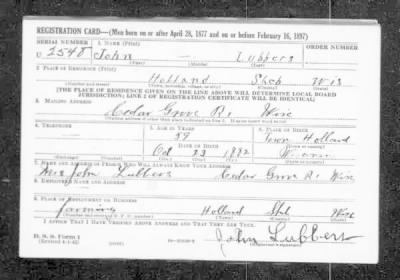 REGISTRATION CARD—(Men born on or after April 28, 1877 and on or before February 16, 1897)
SERIAL NUMBER 1. NAME (Print) ORDER NUMBER
U 2548 John Lubbers
(First) (Middle) (Last)
2. PLACE OF RESIDENCE (Print)
Holland Sheb Wis
(Number and street) (Town, township, village, or city) (County) (State)
[THE PLACE OF RESIDENCE GIVEN ON THE LINE ABOVE WILL DETERMINE LOCAL BOARD
JURISDICTION; LINE 2 OF REGISTRATION CERTIFICATE WILL BE IDENTICAL]
3. MAILING ADDRESS
Cedar Grove R1 Wisc
4. TELEPHONE 5. AGE IN YEARS 6. PLACE OF BIRTH
59 Town Holland
DATE OF BIRTH (Town or county)
Oct 23 1882
(Exchange) (Number) (Mo.) (Day) (Yr.) (State or country)
7. NAME AND ADDRESS OF PERSON WHO WILL ALWAYS KNOW YOUR ADDRESS
Mrs John Lubbers Cedar Grove R1 Wisc
8. EMPLOYER'S NAME AND ADDRESS
9. PLACE OF EMPLOYMENT OR BUSINESS
Farming Holland Wisc
(Number and street or R. F. D. number) (Town) (County) (State)
I AFFIRM THAT I HAVE VERIFIED ABOVE ANSWERS AND THAT THEY ARE TRUE.
D. S. S. FORM 1
John Lubbers